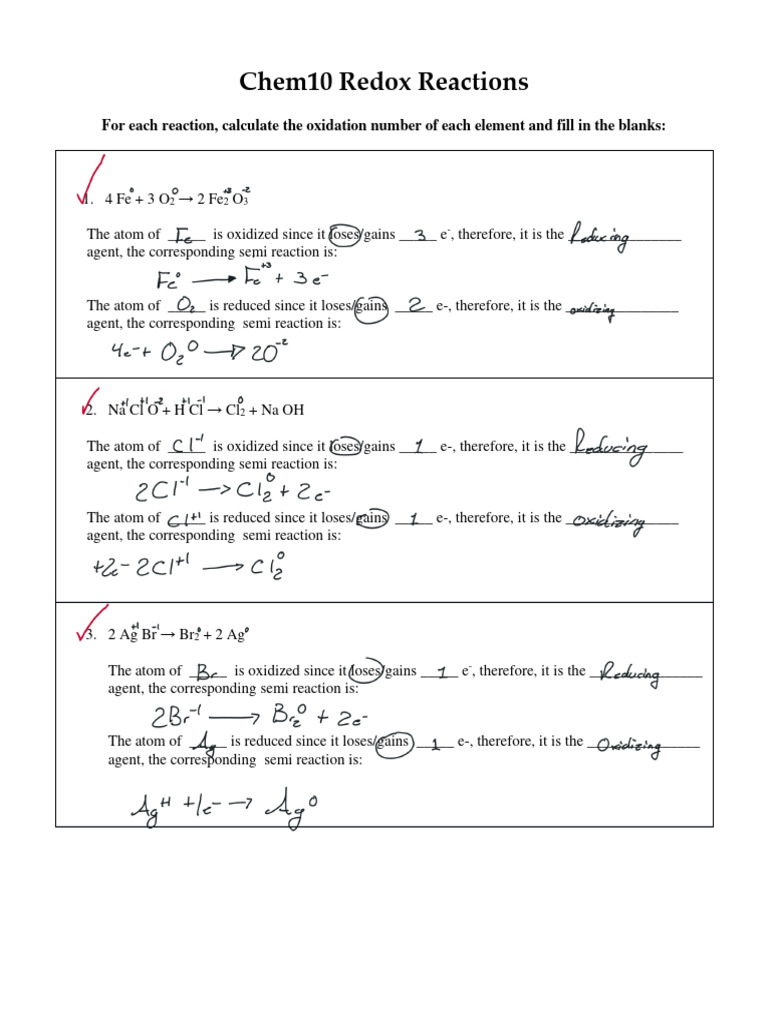 Chem10 Redox Reactions
For each reaction, calculate the oxidation number of each element and fill in the blanks:
1. 4 Fe⁰ + 3 O₂⁰ → 2 Fe₂⁺³ O₃⁻²
The atom of Fe is oxidized since it loses/gains 3 e⁻, therefore, it is the Reducing
agent, the corresponding semi reaction is:
Fe⁰ → Fe⁺³ + 3e⁻
The atom of O₂ is reduced since it loses/gains 2 e-, therefore, it is the oxidizing
agent, the corresponding semi reaction is:
4e⁻ + O₂⁰ → 2O⁻²
2. Na⁺¹ Cl⁺¹ O⁻² + H⁺¹ Cl⁻¹ → Cl₂⁰ + Na OH
The atom of Cl⁻¹ is oxidized since it loses/gains 1 e-, therefore, it is the Reducing
agent, the corresponding semi reaction is:
2Cl⁻¹ → Cl₂⁰ + 2e⁻
The atom of Cl⁺¹ is reduced since it loses/gains 1 e-, therefore, it is the oxidizing
agent, the corresponding semi reaction is:
+2e⁻ 2Cl⁺¹ → Cl₂⁰
3. 2 Ag⁺¹ Br⁻¹ → Br₂⁰ + 2 Ag⁰
The atom of Br is oxidized since it loses/gains 1 e⁻, therefore, it is the Reducing
agent, the corresponding semi reaction is:
2Br⁻¹ → Br₂⁰ + 2e⁻
The atom of Ag is reduced since it loses/gains 1 e-, therefore, it is the Oxidizing
agent, the corresponding semi reaction is:
Ag⁺¹ + 1e⁻ → Ag⁰